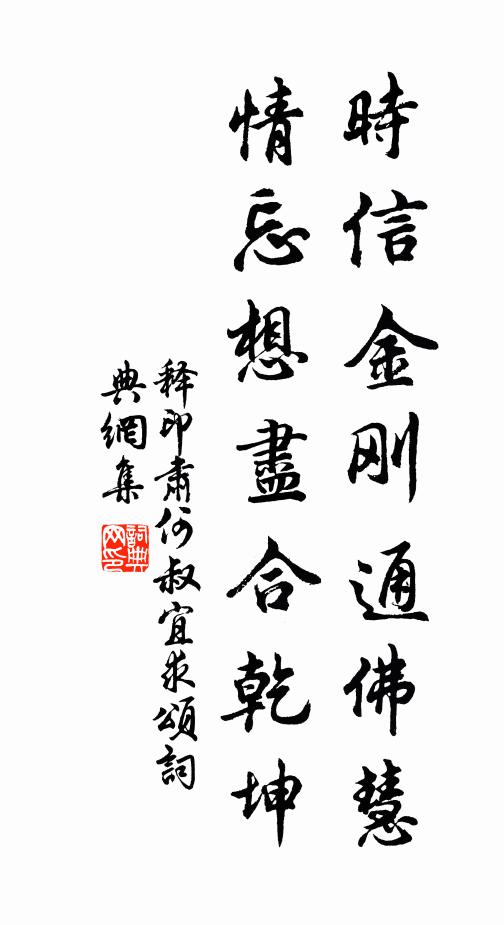 時信金刚通佛慧
情忘想盡合乾坤
释印肅何叔宜求頌詞
典網集
詞典网印